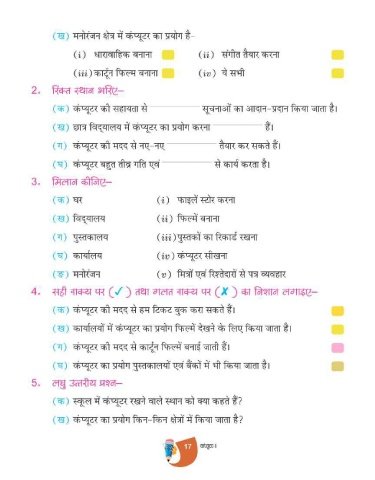 (ख) मनोरंजन क्षेत्र में कंप्यूटर का प्रयोग है–
(i) धारावाहिक बनाना (ii) संगीत तैयार करना
(iii) कार्टून फिल्म बनाना (iv) ये सभी
2. रिक्त स्थान भरिए–
(क) कंप्यूटर की सहायता से सूचनाओं का आदान-प्रदान किया जाता है।
(ख) छात्र विद्यालय में कंप्यूटर का प्रयोग करना हैं।
(ग) कंप्यूटर की मदद से नए-नए तैयार कर सकते हैं।
(घ) कंप्यूटर बहुत तीव्र गति एवं से कार्य करता है।
3. मिलान कीजिए–
(क) घर (i) फाइलें स्टोर करना
(ख) विद्यालय (ii) फिल्में बनाना
(ग) पुस्तकालय (iii) पुस्तकों का रिकार्ड रखना
(घ) कार्यालय (iv) कंप्यूटर सीखना
(ङ) मनोरंजन (v) मित्रों एवं रिश्तेदारों से पत्र व्यवहार
4. सही वाक्य पर (✓) तथा गलत वाक्य पर (✗) का निशान लगाइए–
(क) कंप्यूटर की मदद से हम टिकट बुक करा सकते हैं।
(ख) कार्यालयों में कंप्यूटर का प्रयोग फिल्में देखने के लिए किया जाता है।
(ग) कंप्यूटर की मदद से कार्टून फिल्में बनाई जाती हैं।
(घ) कंप्यूटर का प्रयोग पुस्तकालयों एवं बैंकों में भी किया जाता है।
5. लघु उत्तरीय प्रश्न–
(क) स्कूल में कंप्यूटर रखने वाले स्थान को क्या कहते हैं?
(ख) कंप्यूटर का प्रयोग किन-किन क्षेत्रों में किया जाता है?
17